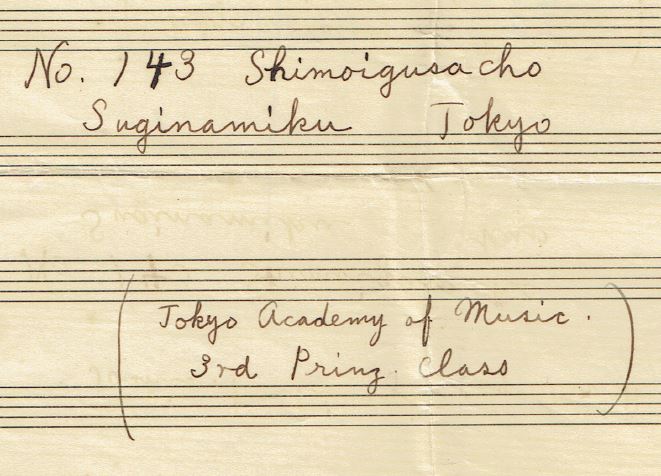 No. 143 Shimoigusacho
Suginamiku Tokyo
(Tokyo Academy of Music.
3rd Pring. Class)